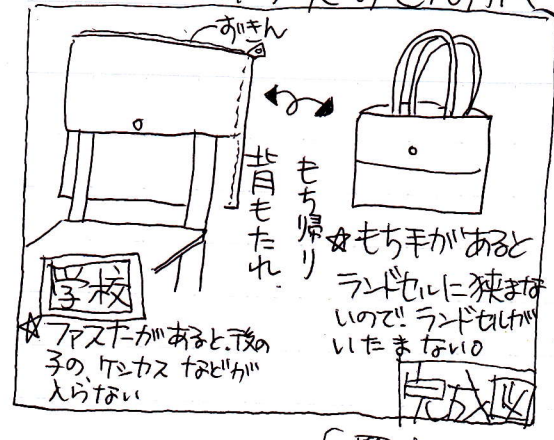 ずきん
背もたれ
もち帰り
学校
☆ファスナーがあると、後の
子の、ケシカスなどが
入らない
☆もち手があると
ランドセルに狭まな
いので、ランドセルが
いたまない。
完成図